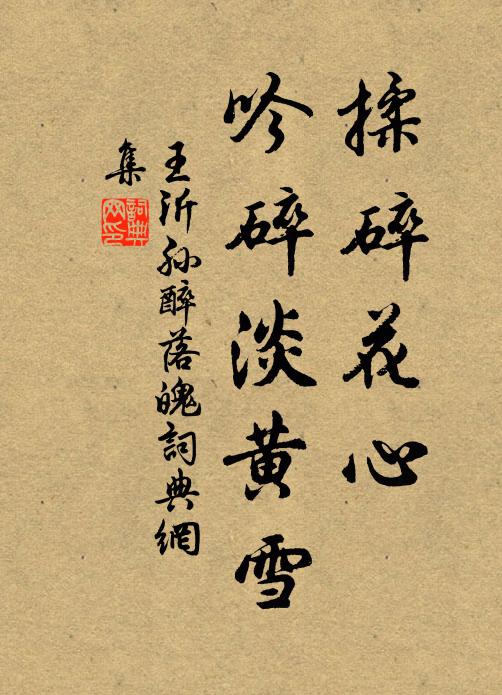 揉碎花心
吟碎淡黄雪
王沂孙醉落魄詞典網
集
詞典
网印